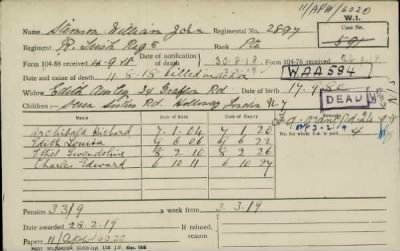 11/APW/6020
W.I.
Name Slemon William John Regimental No. 2897
Case No.
Regiment R. Irish Regt Rank Pte
Form 104-88 received 14-9-18 Date of notification of death 30-8-18 Form 104-76 received
Date and cause of death 11-5-15 Killed in action WAA584
Widow Edith Amley 24 Grafton Rd 17.9.80
Children Seven Sisters Rd. Holloway London N.7 DEAD
Date of Birth. Date of Expiry. Date of Birth. Date of Expiry.
Archibald Richard 7 1 04 7 1 20
Edith Louisa 9 6 06 6 22
Ethel Gwendoline 8 2 10 8 2 26
Charles Edward 6 10 11 6 10 27
No. for whom paid 4
Pension 33/9 a week from 2-3-19
Date awarded 28-2-19 If refused, reason
Papers 11/APW/6020